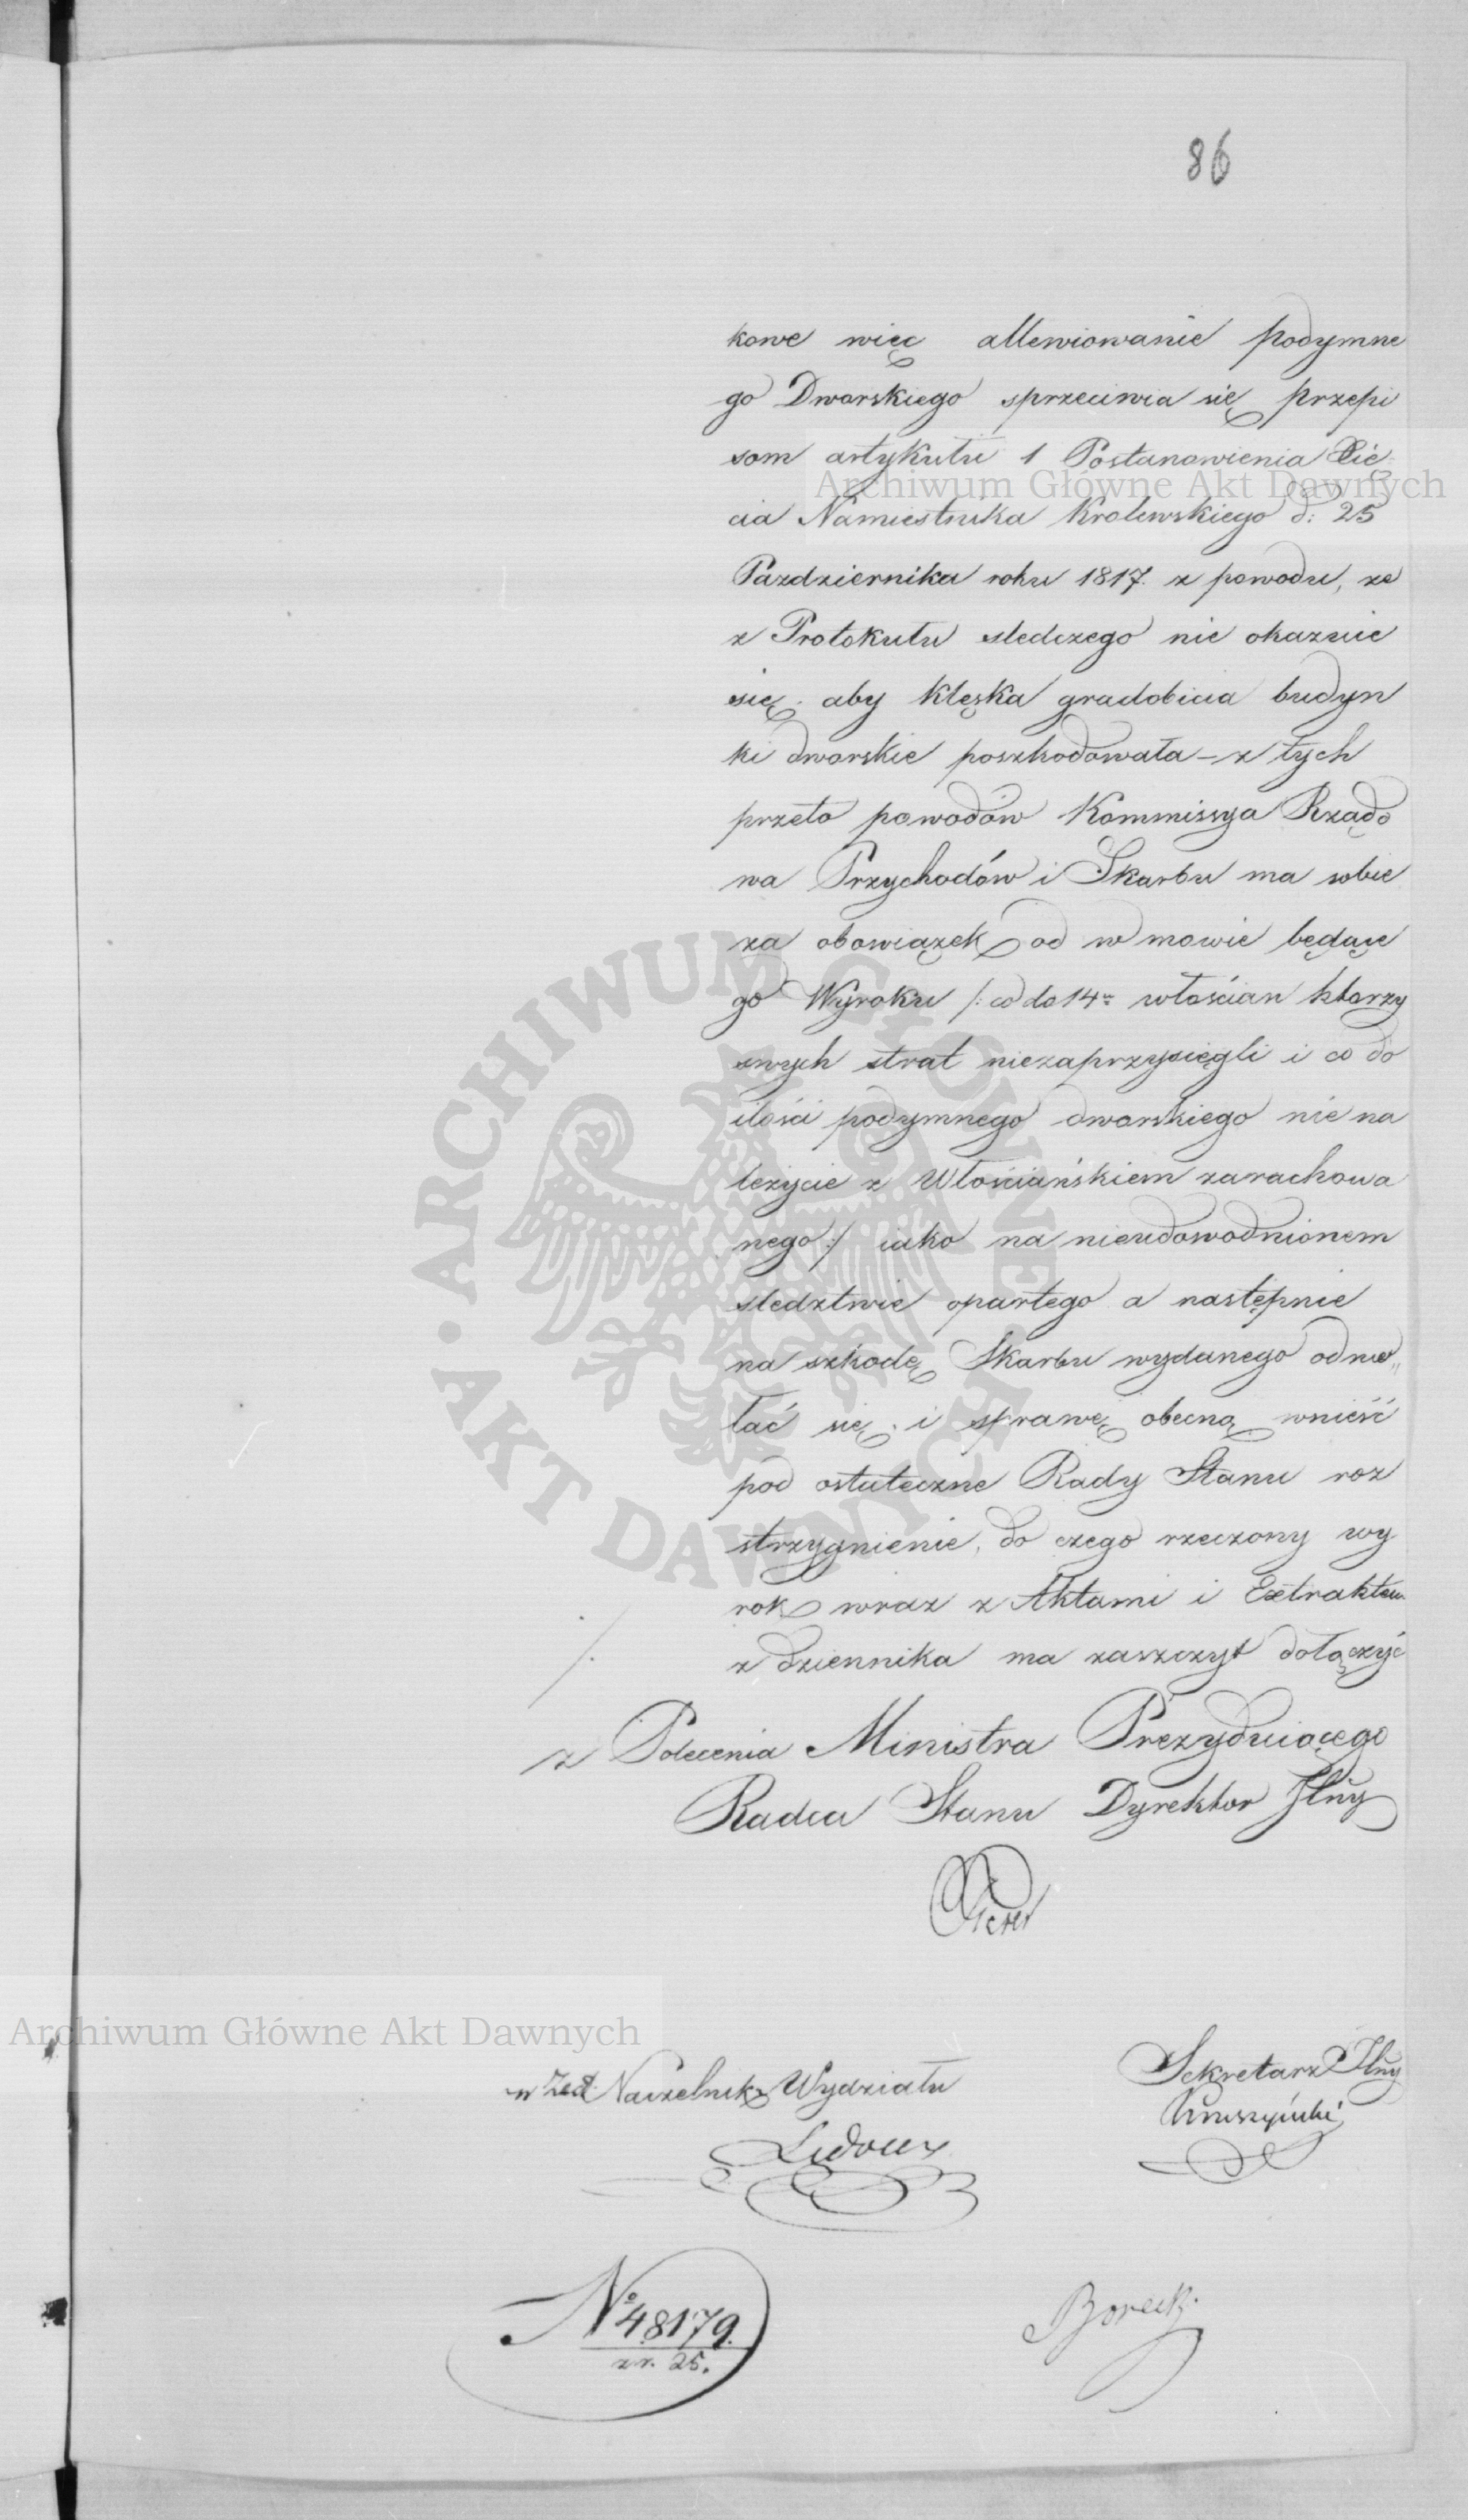 86
kowe więc allewiowanie podymne
go Dworskiego sprzeciwia się przepi
som artykułu 1 Postanowienia Xię
cia Namiestnika Krolewskiego d: 25
Pazdziernika roku 1817. z powodu, ze
z Protokułu sledczego nie okazuie
się aby klęska gradobicia budyn
ki dworskie poszkodowała – z tych
przeto powodów Kommissya Rządo
wa Przychodów i Skarbu ma sobie
za obowiązek od w mowie będące
go Wyroku /: co do 14tu włościan ktorzy
swych strat niezaprzysięgli i co do
ilości podymnego dworskiego nie na
leżycie z Włościańskiem zarachowa
nego :/ iako na nieudowodnionem
sledztwie opartego a następnie
na szkodę Skarbu wydanego odwo„
łać się i sprawę obecną wnieść
pod ostateczne Rady Stanu roz
strzygnienie, do czego rzeczony wy
rok wraz z Aktami i Extraktem
z dziennika ma zaszczyt dołączyć
z Polecenia Ministra Prezyduiącego
Radca Stanu Dyrektor Jlny
Sekretarz Jlny
w Zast Naczelnika Wydziału
Kruszyński
Ledoux
No 48179.
z r. 25.
Borecki
Archiwum Główne Akt Dawnych
Archiwum Główne Akt Dawnych
ARCHIWUM GŁÓWNE AKT DAWNYCH